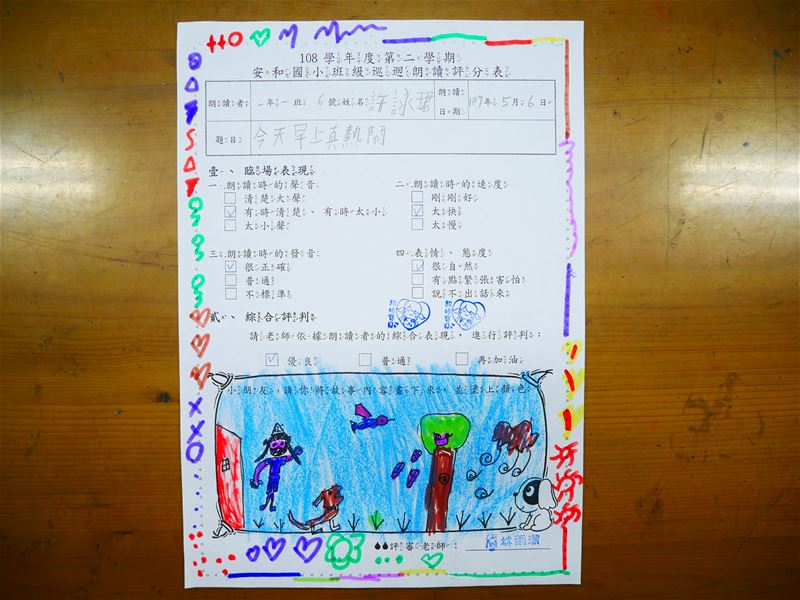 108 學年度第二學期
安和國小班級巡迴朗讀評分表
朗讀者 一年一班 6 號姓名 許詠珺 朗讀日期 109年5月6日
題目 今天早上真熱鬧
壹、臨場表現
一.朗讀時的聲音 二.朗讀時的速度
清楚大聲 剛剛好
有時清楚、有時太小 太快
太小聲 太慢
三.朗讀時的發音 四.表情、態度
很正確 很自然
普通 有點緊張害怕
不標準 說不出話來
貳、綜合評判
請老師依據朗讀者的綜合表現，進行評判：
優良 普通 再加油
小朋友，請你將故事內容畫下來，並塗上顏色
評審老師：